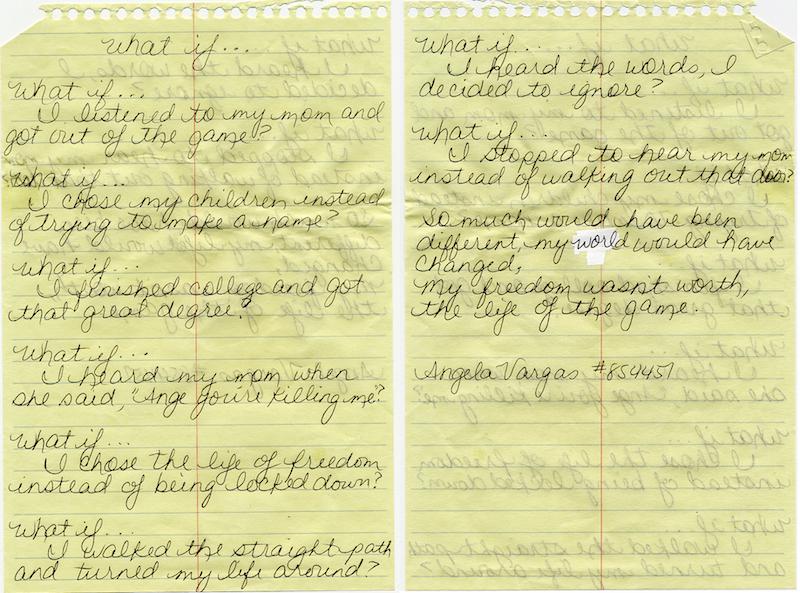 What if...
What if...
I listened to my mom and
got out of the game?
What if...
I chose my children instead
of trying to make a name?
What if...
I finished college and got
that great degree?
What if...
I heard my mom when
she said, "Ange you're killing me"?
What if...
I chose the life of freedom
instead of being locked down?
What if...
I walked the straight path
and turned my life around?
What if...
I heard the words, I
decided to ignore?
What if...
I stopped to hear my mom
instead of walking out that door?
So much would have been
different, my world would have
changed,
my freedom wasn't worth,
the life of the game.
Angela Vargas #854457